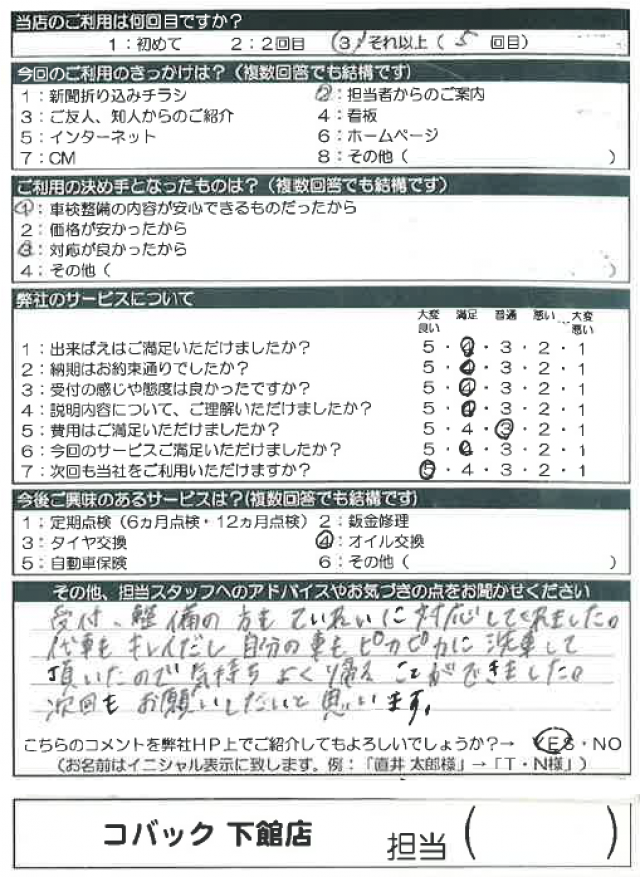 当店のご利用は何回目ですか？
1：初めて 2：2回目 3：それ以上（ 5 回目）
今回のご利用のきっかけは？（複数回答でも結構です）
1：新聞折り込みチラシ 2：担当者からのご案内
3：ご友人、知人からのご紹介 4：看板
5：インターネット 6：ホームページ
7：CM 8：その他（ ）
ご利用の決め手となったものは？（複数回答でも結構です）
1：車検整備の内容が安心できるものだったから
2：価格が安かったから
3：対応が良かったから
4：その他（ ）
弊社のサービスについて
大変良い 満足 普通 悪い 大変悪い
1：出来ばえはご満足いただけましたか？ 5・4・3・2・1
2：納期はお約束通りでしたか？ 5・4・3・2・1
3：受付の感じや態度は良かったですか？ 5・4・3・2・1
4：説明内容について、ご理解いただけましたか？ 5・4・3・2・1
5：費用はご満足いただけましたか？ 5・4・3・2・1
6：今回のサービスご満足いただけましたか？ 5・4・3・2・1
7：次回も当社をご利用いただけますか？ 5・4・3・2・1
今後ご興味のあるサービスは？(複数回答でも結構です)
1：定期点検（6ヵ月点検・12ヵ月点検） 2：鈑金修理
3：タイヤ交換 4：オイル交換
5：自動車保険 6：その他（ ）
その他、担当スタッフへのアドバイスやお気づきの点をお聞かせください
受付、整備の方もていねいに対応してくれました。
代車もキレイだし自分の車もピカピカに洗車して
頂いたので気持ちよく帰ることができました。
次回もお願いしたいと思います。
こちらのコメントを弊社HP上でご紹介してもよろしいでしょうか？→ YES・NO
（お名前はイニシャル表示に致します。例：「直井 太郎様」→「T・N様」）
コバック 下館店 担当（ ）